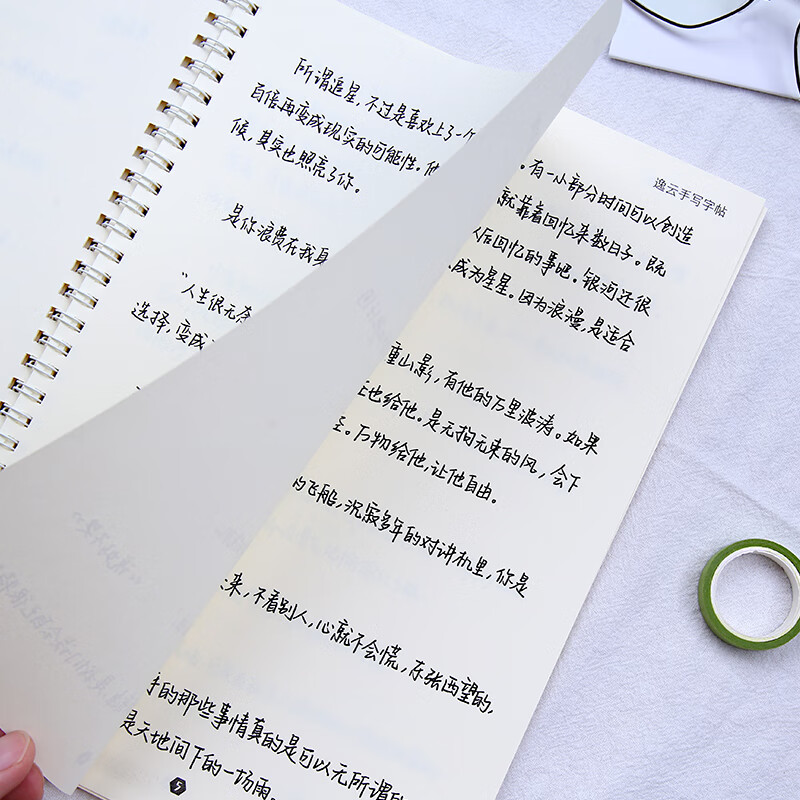 逸云手写字帖
所谓追星，不过是喜欢上了一个
百倍再变成现实的可能性。他
候，其实也照亮了你。
是你浪费在我身
“人生很无奈
选择，变成
。有一小部分时间可以创造
就靠着回忆来数日子。既
以后回忆的事吧。银河还很
成为星星。因为浪漫，是适合
重山影，有他的万里波涛。如果
也给他。是无拘无束的风，会下
至。万物给他，让他自由。
的飞船，沉寂多年的对讲机里，你是
来，不看别人，心就不会慌，东张西望的，
手的那些事情真的是可以无所谓的
是天地间下的一场雨。
5